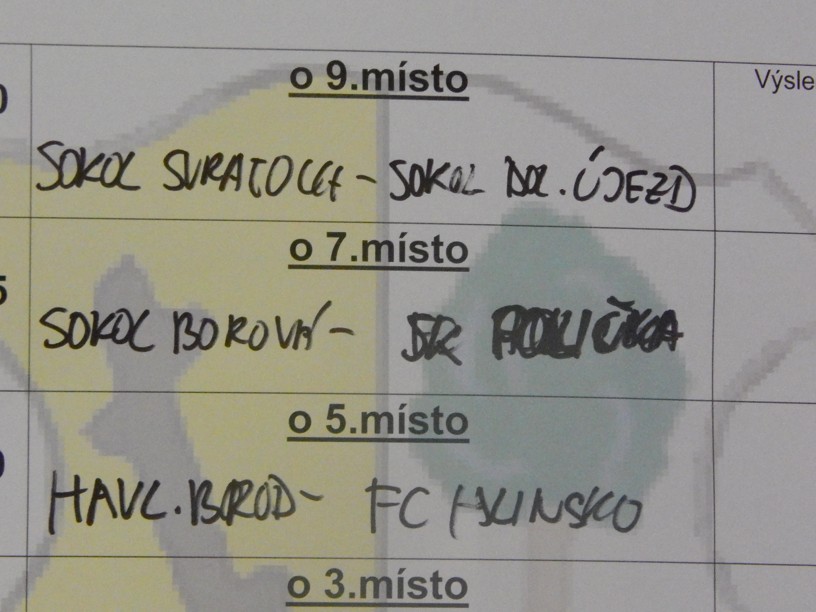 o 9.místo
Výsle
SOKOL SVRATOUCH - SOKOL DOL. ÚJEZD
o 7.místo
SOKOL BOROVÁ - SK POLIČKA
o 5.místo
HAVL. BROD - FC HLINSKO
o 3.místo